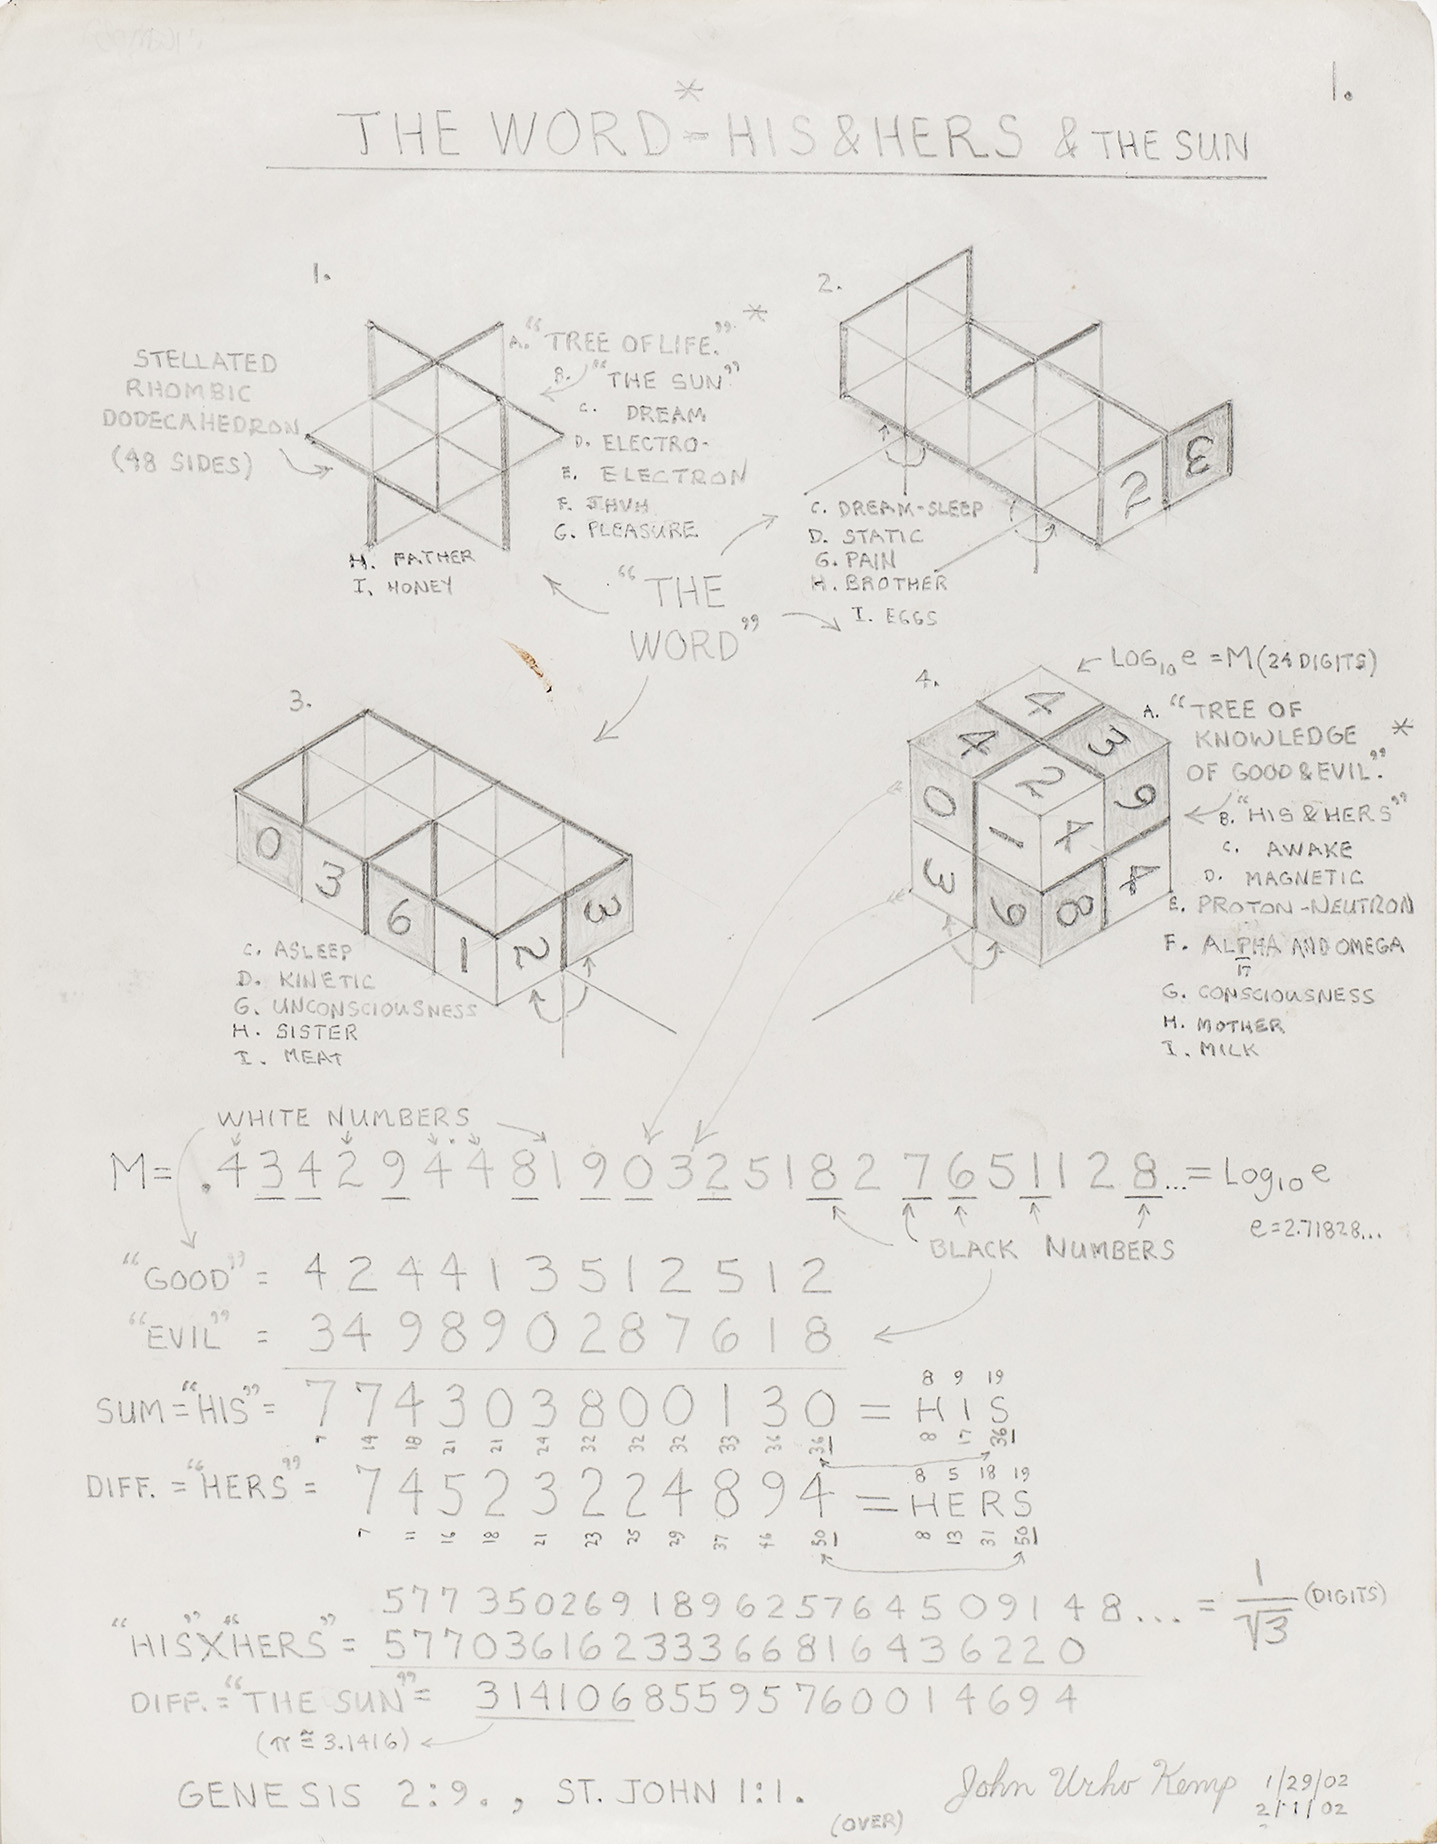 1.
*
THE WORD = HIS & HERS & THE SUN
1.
STELLATED
RHOMBIC
DODECAHEDRON
(48 SIDES)
A. "TREE OF LIFE." *
B. "THE SUN"
C. DREAM
D. ELECTRO-
E. ELECTRON
F. JHVH
G. PLEASURE
H. FATHER
I. HONEY
2.
2 3
C. DREAM-SLEEP
D. STATIC
G. PAIN
H. BROTHER
I. EGGS
"THE
WORD"
3.
0 3 6 1 2 3
C. ASLEEP
D. KINETIC
G. UNCONSCIOUSNESS
H. SISTER
I. MEAT
4.
LOG10 e = M (24 DIGITS)
4
4 3
2
0 1 4 9
3 9 8 4
A. "TREE OF
KNOWLEDGE *
OF GOOD & EVIL."
B. "HIS & HERS"
C. AWAKE
D. MAGNETIC
E. PROTON-NEUTRON
F. ALPHA AND OMEGA
17
G. CONSCIOUSNESS
H. MOTHER
I. MILK
WHITE NUMBERS
M = .434294481903251827651128... = Log10 e
e = 2.71828...
BLACK NUMBERS
"GOOD" = 424413512512
"EVIL" = 349890287618
8 9 19
SUM = "HIS" = 774303800130 = HIS
7 14 18 21 21 24 32 32 32 33 36 36 8 17 36
8 5 18 19
DIFF. = "HERS" = 74523224894 = HERS
7 11 16 18 21 23 25 29 37 46 50 8 13 31 50
57735026918962576450914 8... = 1/√3 (DIGITS)
"HIS" X "HERS" = 57703616233366816436220
DIFF. = "THE SUN" = 31410685595760014694
(π ≅ 3.1416)
GENESIS 2:9., ST. JOHN 1:1.
(OVER)
John Urho Kemp 1/29/02
2/11/02